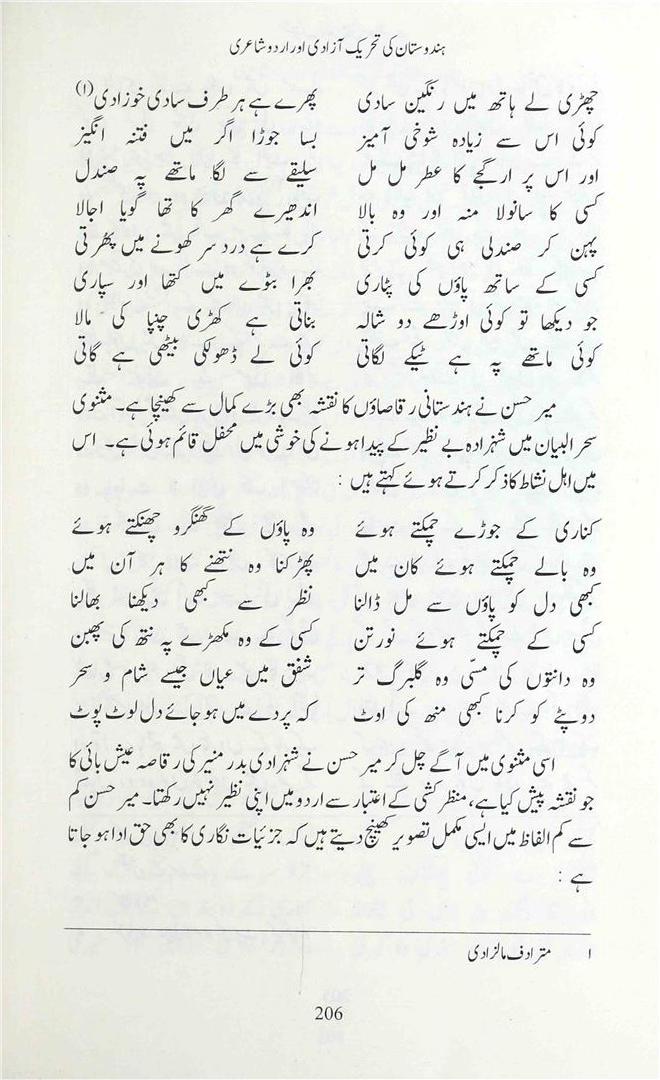 ہندوستان کی تحریک آزادی اور اردو شاعری
چھڑی لے ہاتھ میں رنگین سادی پھرے ہے ہر طرف سادی خوزادی(۱)
کوئی اس سے زیادہ شوخی آمیز بسا جوڑا اگر میں فتنہ انگیز
اور اس پر ارگجے کا عطر مل مل سلیقے سے لگا ماتھے پہ صندل
کسی کا سانولا منہ اور وہ بالا اندھیرے گھر کا تھا گویا اجالا
پہن کر صندلی ہی کوئی کرتی کرے ہے درد سر کھونے میں پھرتی
کسی کے ساتھ پاؤں کی پٹاری بھرا بٹوے میں کتھا اور سپاری
جو دیکھا تو کوئی اوڑھے دو شالہ بناتی ہے کھڑی چنپا کی مالا
کوئی ماتھے پہ ہے ٹیکے لگاتی کوئی لے ڈھولکی بیٹھی ہے گاتی
میر حسن نے ہندستانی رقاصاؤں کا نقشہ بھی بڑے کمال سے کھینچا ہے۔ مثنوی
سحرالبیان میں شہزادہ بے نظیر کے پیدا ہونے کی خوشی میں محفل قائم ہوئی ہے۔ اس
میں اہل نشاط کا ذکر کرتے ہوئے کہتے ہیں :
کناری کے جوڑے چمکتے ہوئے وہ پاؤں کے گھنگرو چھنکتے ہوئے
وہ بالے چمکتے ہوئے کان میں پھڑکنا وہ نتھنے کا ہر آن میں
کبھی دل کو پاؤں سے مل ڈالنا نظر سے کبھی دیکھنا بھالنا
کسی کے چمکتے ہوئے نورتن کسی کے وہ مکھڑے پہ نتھ کی پھبن
وہ دانتوں کی مسّی وہ گلبرگ تر شفق میں عیاں جیسے شام و سحر
دوپٹے کو کرنا کبھی منھ کی اوٹ کہ پردے میں ہو جائے دل لوٹ پوٹ
اسی مثنوی میں آگے چل کر میر حسن نے شہزادی بدر منیر کی رقاصہ عیش بائی کا
جو نقشہ پیش کیا ہے، منظر کشی کے اعتبار سے اردو میں اپنی نظیر نہیں رکھتا۔ میر حسن کم
سے کم الفاظ میں ایسی مکمل تصویر کھینچ دیتے ہیں کہ جزئیات نگاری کا بھی حق ادا ہو جاتا
ہے :
۱ مترادف مالزادی
206